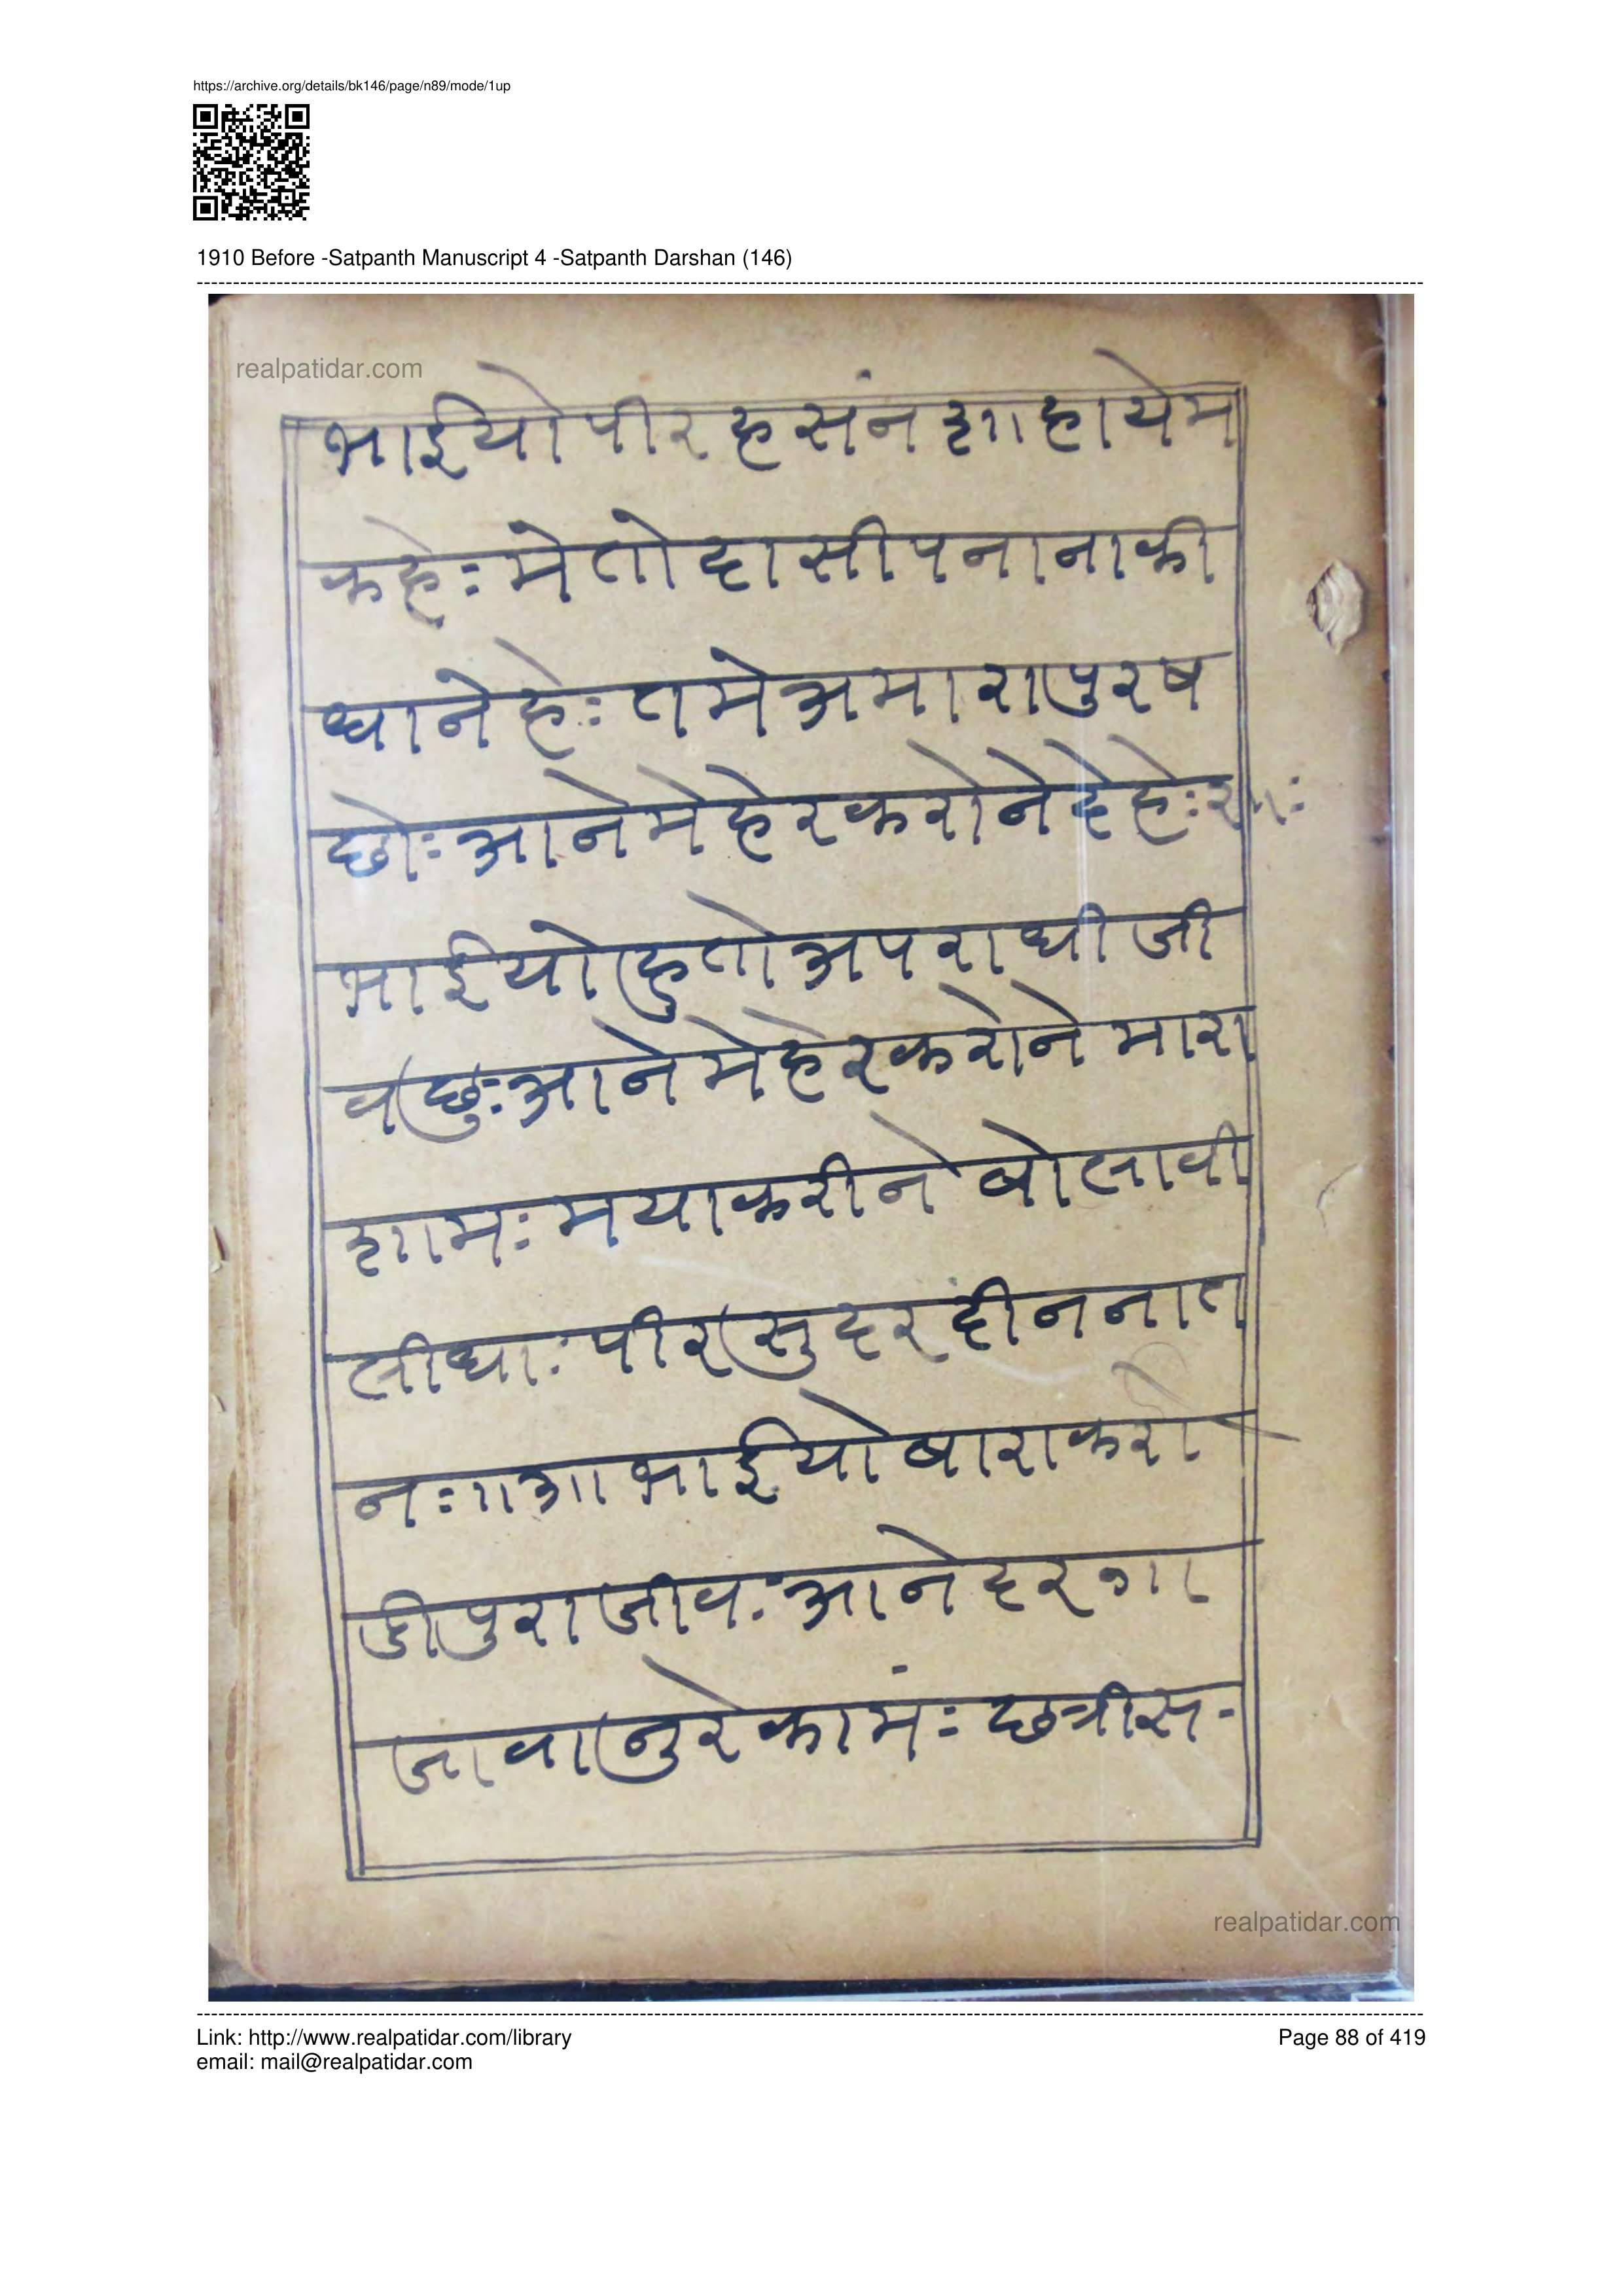 https://archive.org/details/bk146/page/n89/mode/1up
1910 Before -Satpanth Manuscript 4 -Satpanth Darshan (146)
realpatidar.com
भाईयो पीर हसंन शाहा येम
कहे: मे तो दासी पनानाकी
धाने हे: तमे अमारा पुरष
छो: आने मेहेर करोने देहे:
भाईयो हु तो अपराधी जी
व छु: आने मेहेर करोने मारा
शाम: मया करीने बोलावी
लीधा: पीर सुदरदीन नात
न: ।।आ।। भाईयो बारा करो
डी पुरा जीव: आने दरगा
जावानु रे कामं: छत्रीस-
realpatidar.com
Link: http://www.realpatidar.com/library
Page 88 of 419
email: mail@realpatidar.com